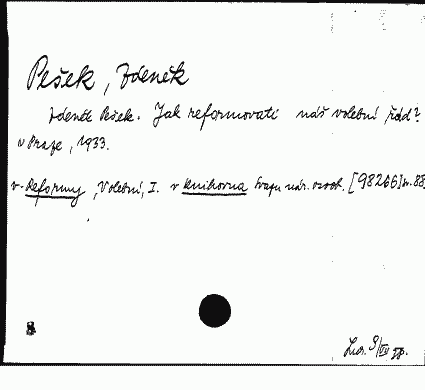 Pešek, Zdeněk
Zdeněk Pešek. Jak reformovati náš volební řád?
v Praze, 1933.
v. Reformy, Volební, I. v Knihovna Svazu nár. osvob. [98266] sv. 88